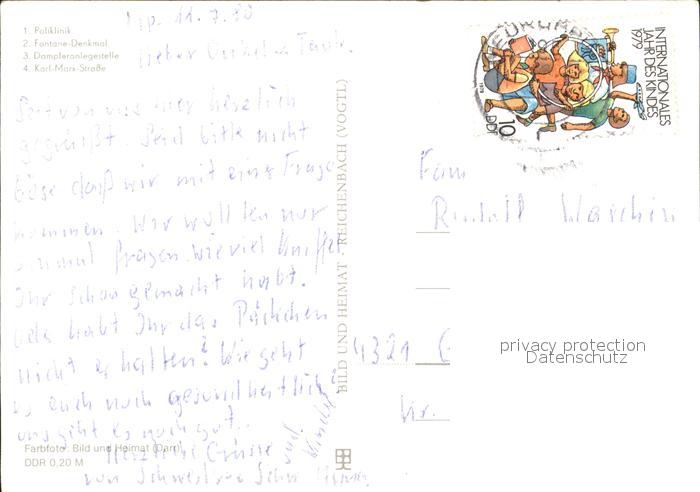 1. Poliklinik
2. Fontane-Denkmal
3. Dampferanlegestelle
4. Karl-Marx-Straße
11. 7. 80
Lieber Onkel u. Tante.
Seit von uns hier herzlich
gegrüßt. Seid bitte nicht
böse daß wir mit eine Frage
kommen. Wir wollten nur
einmal fragen wieviel Kniffel
Ihr schon gemacht habt.
Oder habt Ihr das Päckchen
nicht erhalten? Wie geht
es euch noch gesundheitlich?
uns geht es noch gut.
Herzliche Grüsse
von Schwester
und Kinder
Farbfoto: Bild und Heimat
DDR 0,20 M
BILD UND HEIMAT · REICHENBACH (VOGTL)
INTERNATIONALES
JAHR DES KINDES
1979
10
DDR
Fam
Rudolf
4321
Kr.
privacy protection
Datenschutz